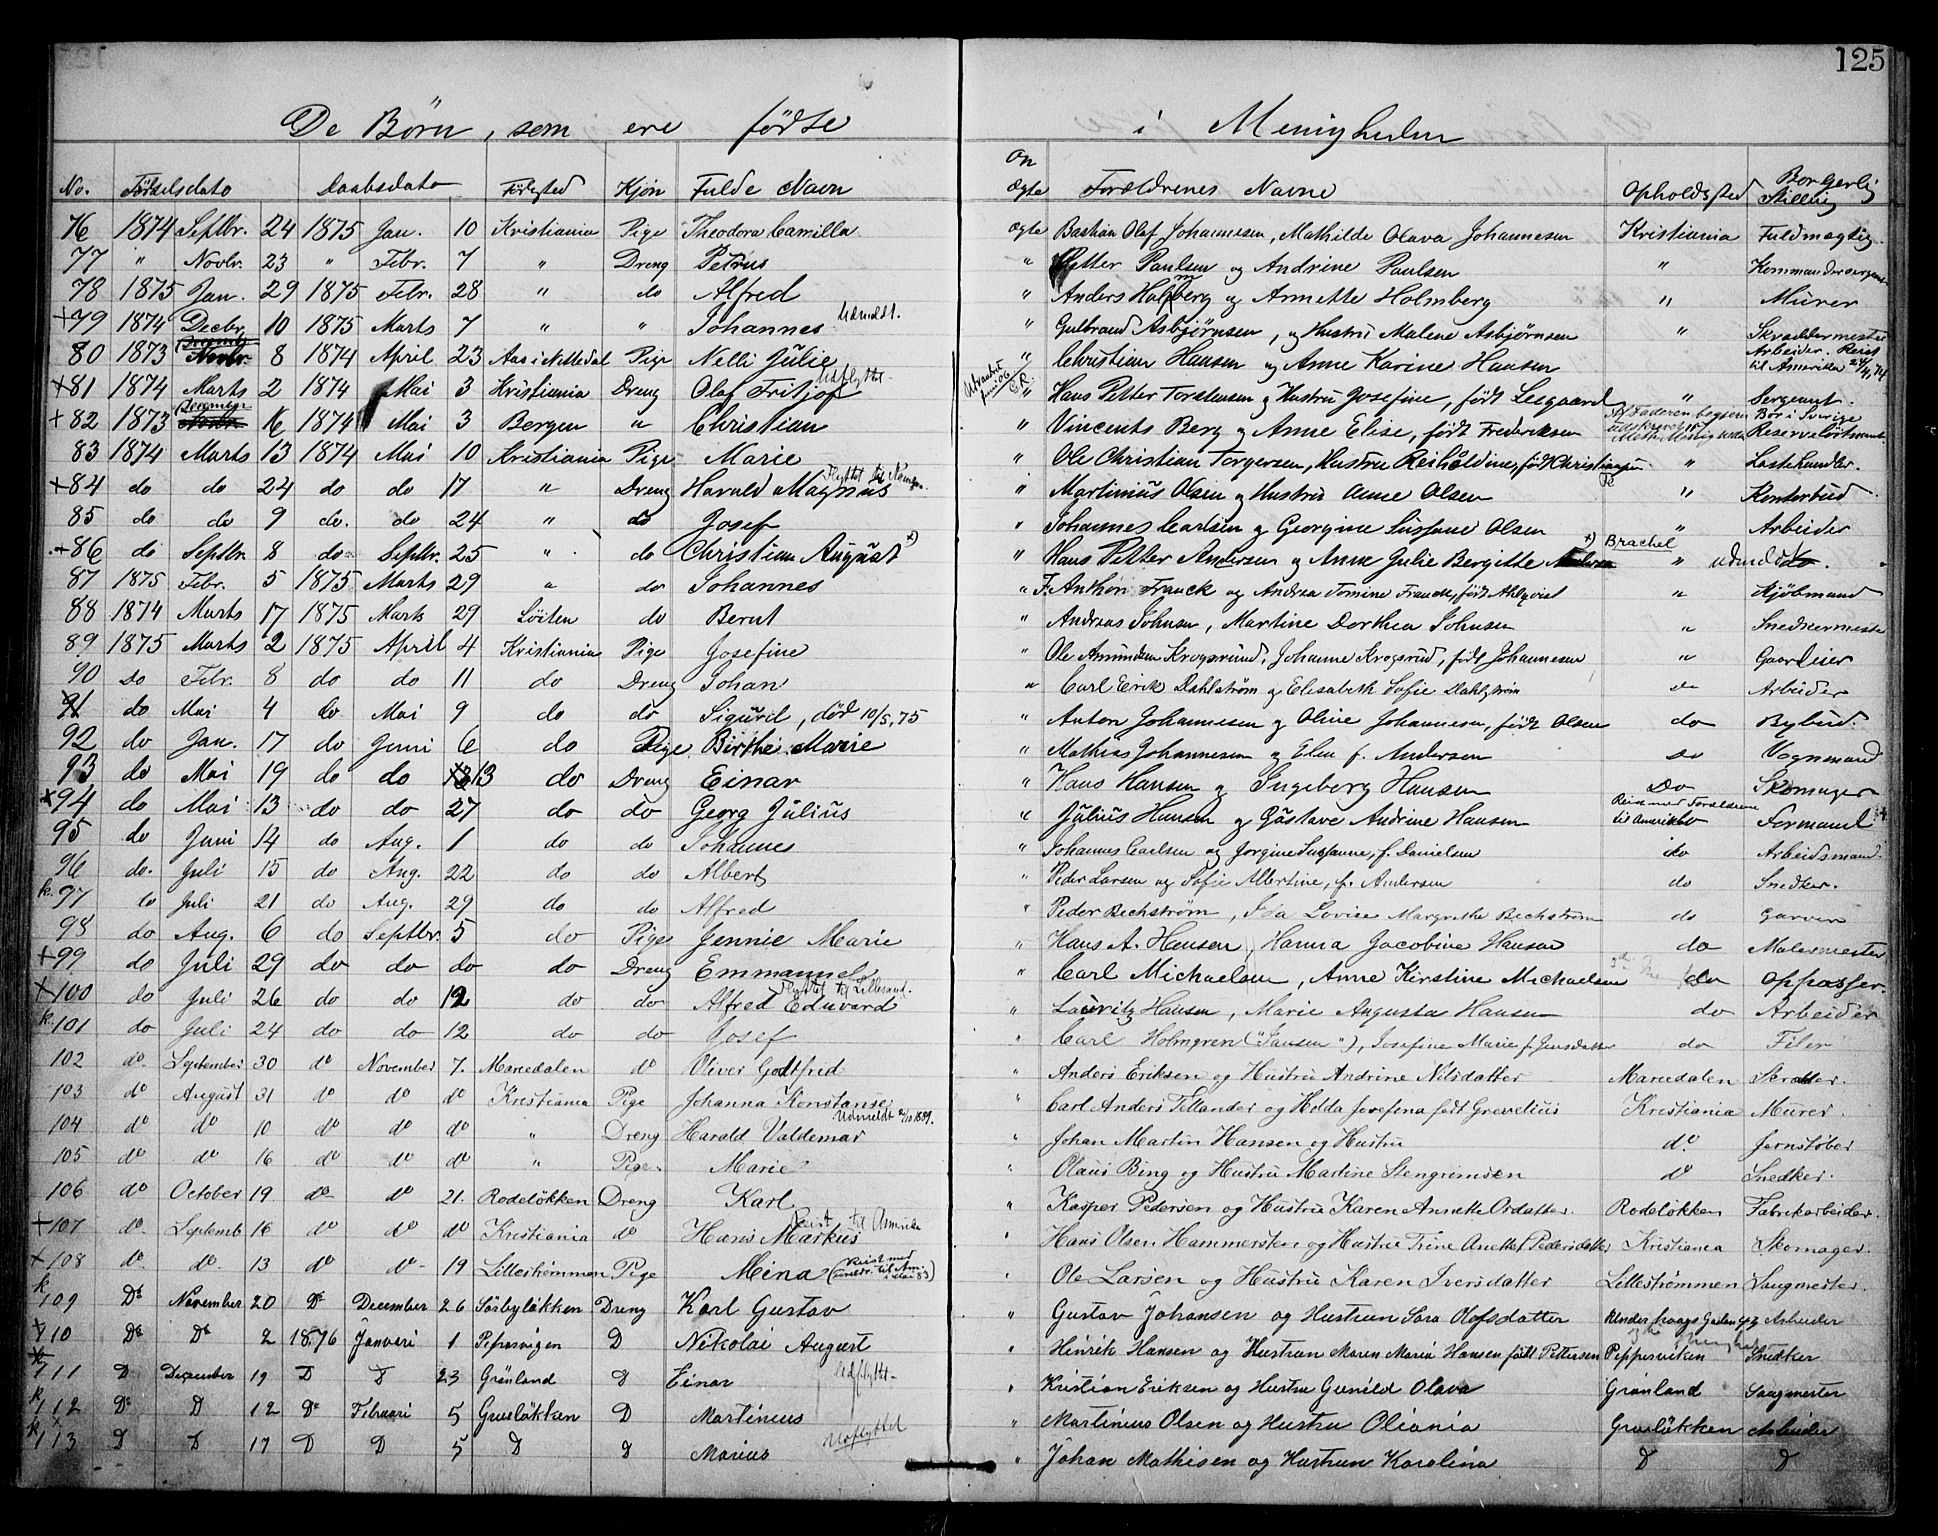 125
De Børn, som ere fødte i Menigheden
No. Fødselsdato Daabsdato Fødested Kjøn Fulde Navn On Ægte Forældrenes Navne Opholdssted Borgerlig Stilling
76 1874 Septbr. 24 1875 Jan. 10 Kristiania Pige Theodora Camilla Ægte Bastian Olaf Johannesen, Mathilde Olava Johannesen Kristiania Fuldmægtig.
77 " Novbr. 23 " Febr. 7 " Dreng Petrus " Petter Paulsen og Andrine Paulsen "
78 1875 Jan. 29 1875 Febr. 28 " do Alfred " Anders Holmberg og Annette Holmberg " Murer
+79 1874 Decbr. 10 1875 Marts 7 " " Johannes Udmeldt. " Gulbrand Asbjørnsen, og Hustru Malene Asbjørnsen " Skræddermester
80 1873 December 8 1874 April 23 Aas i Nittedal Pige Nelli Julie " Christian Hansen og Anne Karine Hansen Arbeider. Reist til Amerika
+81 1874 Marts 2 1874 Mai 3 Kristiania Dreng Olaf Fritjof Udflyttet " Hans Petter Torstensen og Hustru Josefine, født Leegaard " Sergeant.
+82 1873 December 16 1874 Mai 3 Bergen " Christian " Vincents Berg og Anne Elise, født Frederiksen Bor i Sverige
83 1874 Marts 13 1874 Mai 10 Kristiania Pige Marie " Ole Christian Torgersen, Hustru " Lastehandler.
+84 do do 24 do do 17 " Dreng Harald Magnus Flyttet til " Martinius Olsen og Hustru Anne Olsen " Kontorbud.
85 do do 9 do. do 24 " do Josef " Johannes Carlsen og Georgine Susanne Olsen " Arbeider
+86 do Septbr. 8 do Septbr. 25 " do Christian August +) " Hans Petter Andersen og Anne Julie Bergitte +) Brachel " udmeldt
87 1875 Febr. 5 1875 Marts 29 " do Johannes " F. Anthon Franck og Andrea Tomine Franck, født Ahlqvist " Kjøbmand
88 1874 Marts 17 1875 Marts 29 Løiten do Bernt " Andreas Johnsen, Martine Dorthea Johnsen " Snedkermester
89 1875 Marts 2 1875 April 4 Kristiania Pige Josefine " Ole Amundsen Krogsrund, Johanne Krogsrud, født Johannesen " Gaardeier
90 Do Febr. 8 do do 11 do Dreng Johan " Carl Erik Dahlstrøm og Elisabeth Sofie Dahlstrøm do Arbeider
91 do Mai 4 do Mai 9 do do Sigurd, død 10/5, 75 " Anton Johannesen og Oline Johannesen, født Olsen do Bybud.
92 do Jan. 17 do Juni 6 do Pige Birthe Marie " Mathias Johannesen og Elen f. Andersen do Vognmand
93 do Mai 19 do do 13 do Dreng Einar " Hans Hansen og Ingeborg Hansen Do Skomager
+94 do Mai 13 do do 27 do do Georg Julius " Julius Hansen og Gustave Andrine Hansen Reist med Forældrene til Amerika Formand
95 do Juni 14 do Aug. 1 do do Johannes " Johannes Carlsen og Jorgine Susanne, f. Danielsen do Arbeidsmand.
96 do. Juli 15 do Aug. 22 do do Albert " Peder Larsen og Sofie Albertine, f. Andersen do Snedker.
k. 97 do Juli 21 do Aug. 29 do do Alfred " Peder Bechstrøm, Ida Lovise Margrethe Bechstrøm do Garver
98 do Aug. 6 do Septbr. 5 do Pige Jennie Marie " Hans A. Hansen, Hanna Jacobine Hansen do Malermester
+99 do Juli 29 do do do do Dreng Emmanuel " Carl Michaelsen, Anne Kirstine Michaelsen do Oppasser.
+100 do Juli 26 do do 12 do do Alfred Eduvard Flyttet til Lillesand. " Lauritz Hansen, Marie Augusta Hansen do Arbeider
k. 101 do Juli 24 do do 12 do do Josef " Carl Holmgren ("Jansen"), Josefine Marie f. Jensdatter do Filer
102 do September 30 do November 7. Maredalen do Oliver Godtfred " Anders Eriksen og Hustru Andrine Nilsdatter Maredalen
103 do August 31 do do do Kristiania Pige Johanna Konstanse " Carl Anders Tellander og Holda Josefina født Grevelius Kristiania Murer.
104 do do 10 do do do " Dreng Harald Valdemar Udmeldt 2/10 1889. " Johan Martin Hansen og Hustru do. Jernstøber
105 do do 16 do do do " Pige. Marie " Olaus Bing og Hustru Martine Stengrimsen do Snedker.
106 do October 19 do do 21. Rodeløkken Dreng Karl " Kasper Pedersen og Hustru Karen Annette Ordatter. Rodeløkken Fabrikarbeider.
+107 do Septemb 16 do do do Kristiania do Hans Markus Reist til Amerika " Hans Olsen Hammersten og Hustru Trine Anette Pedersdatter Kristiania Skomager.
+108 do. do. 13 do do 19 Lillestrømmen Pige Mina (Reist med til Am. i Mai 83) " Ole Larsen og Hustru Karen Iversdatter Lillestrømmen Saugmester.
k 109 Do November 20 Do December 26 Sørbyløkken Dreng Karl Gustav " Gustav Johansen og Hustrun Sara Olofsdatter Arbeider
+110 Do Do 2 1876 Januari 1 Pipervigen D Nikolai August " Hinrik Hansen og Hustrun Maren Maria Hansen født Pettersen Peppervikken Snedker
k 111 D December 19 D D 23 Grønland D Einar Udflyttet " Kristian Eriksen og Hustru Gunild Olava Grønland Saugmester
k 112 Do D 12 Do Februari 5 Grusløkken D Martinius " Martinius Olsen og Hustru Oliania Grusløkken Arbeider
k 113 D D 17 D D 5 D D Marius Udflyttet " Johan Mathisen og Hustrun Karolina D D